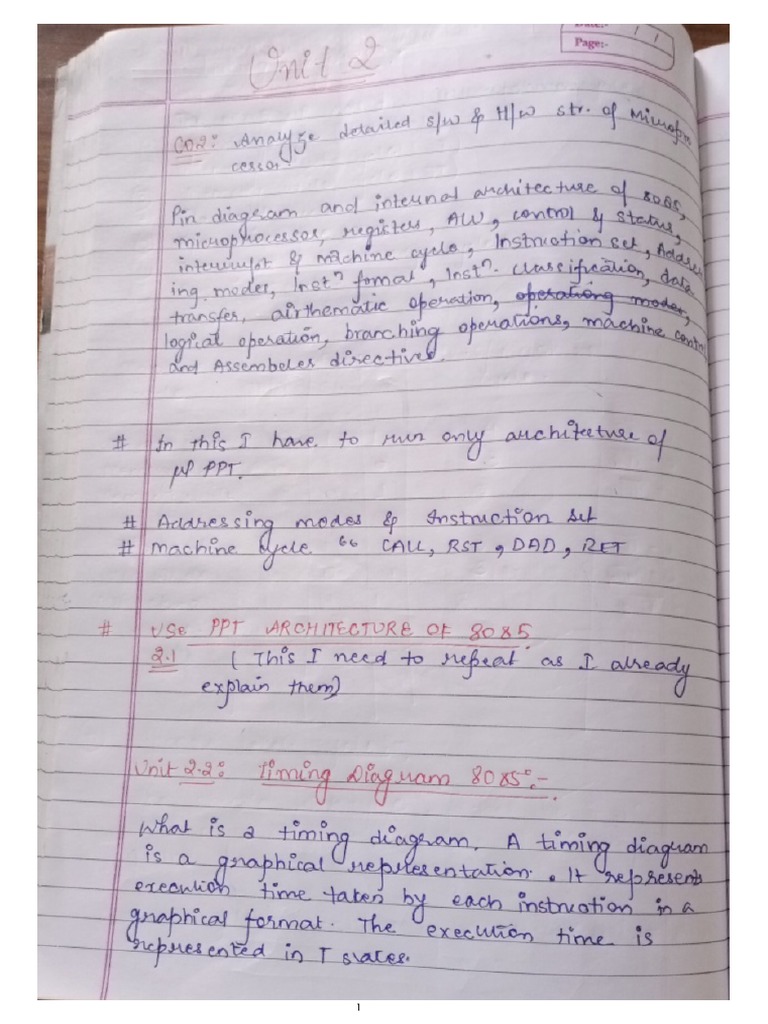 Date:- / /
Page:-
Unit 2
CO2: Analyze detailed S/W & H/W str. of Micropro
cessor.
Pin diagram and internal architecture of 8085,
microprocessor, registers, ALU, control & status,
interrupt & Machine cycle, Instruction set, Address
ing modes, Instⁿ fomat, Instⁿ. classification, data
transfer, airthematic operation, operationg modes,
logical operation, branching operations, machine control
and Assembeler directives.
# In this I have to run only architecture of
μP PPT.
# Addressing modes & Instruction set
# Machine cycle 66 CALL, RST, DAD, RET
# USE PPT ARCHITECTURE OF 8085
2.1 (This I need to repeat as I already
explain them)
Unit 2.2: Timing Diagram 8085:-
What is a timing diagram. A timing diagram
is a graphical representation. It represents
execution time taken by each instruction in a
graphical format. The execution time is
represented in T states.
1